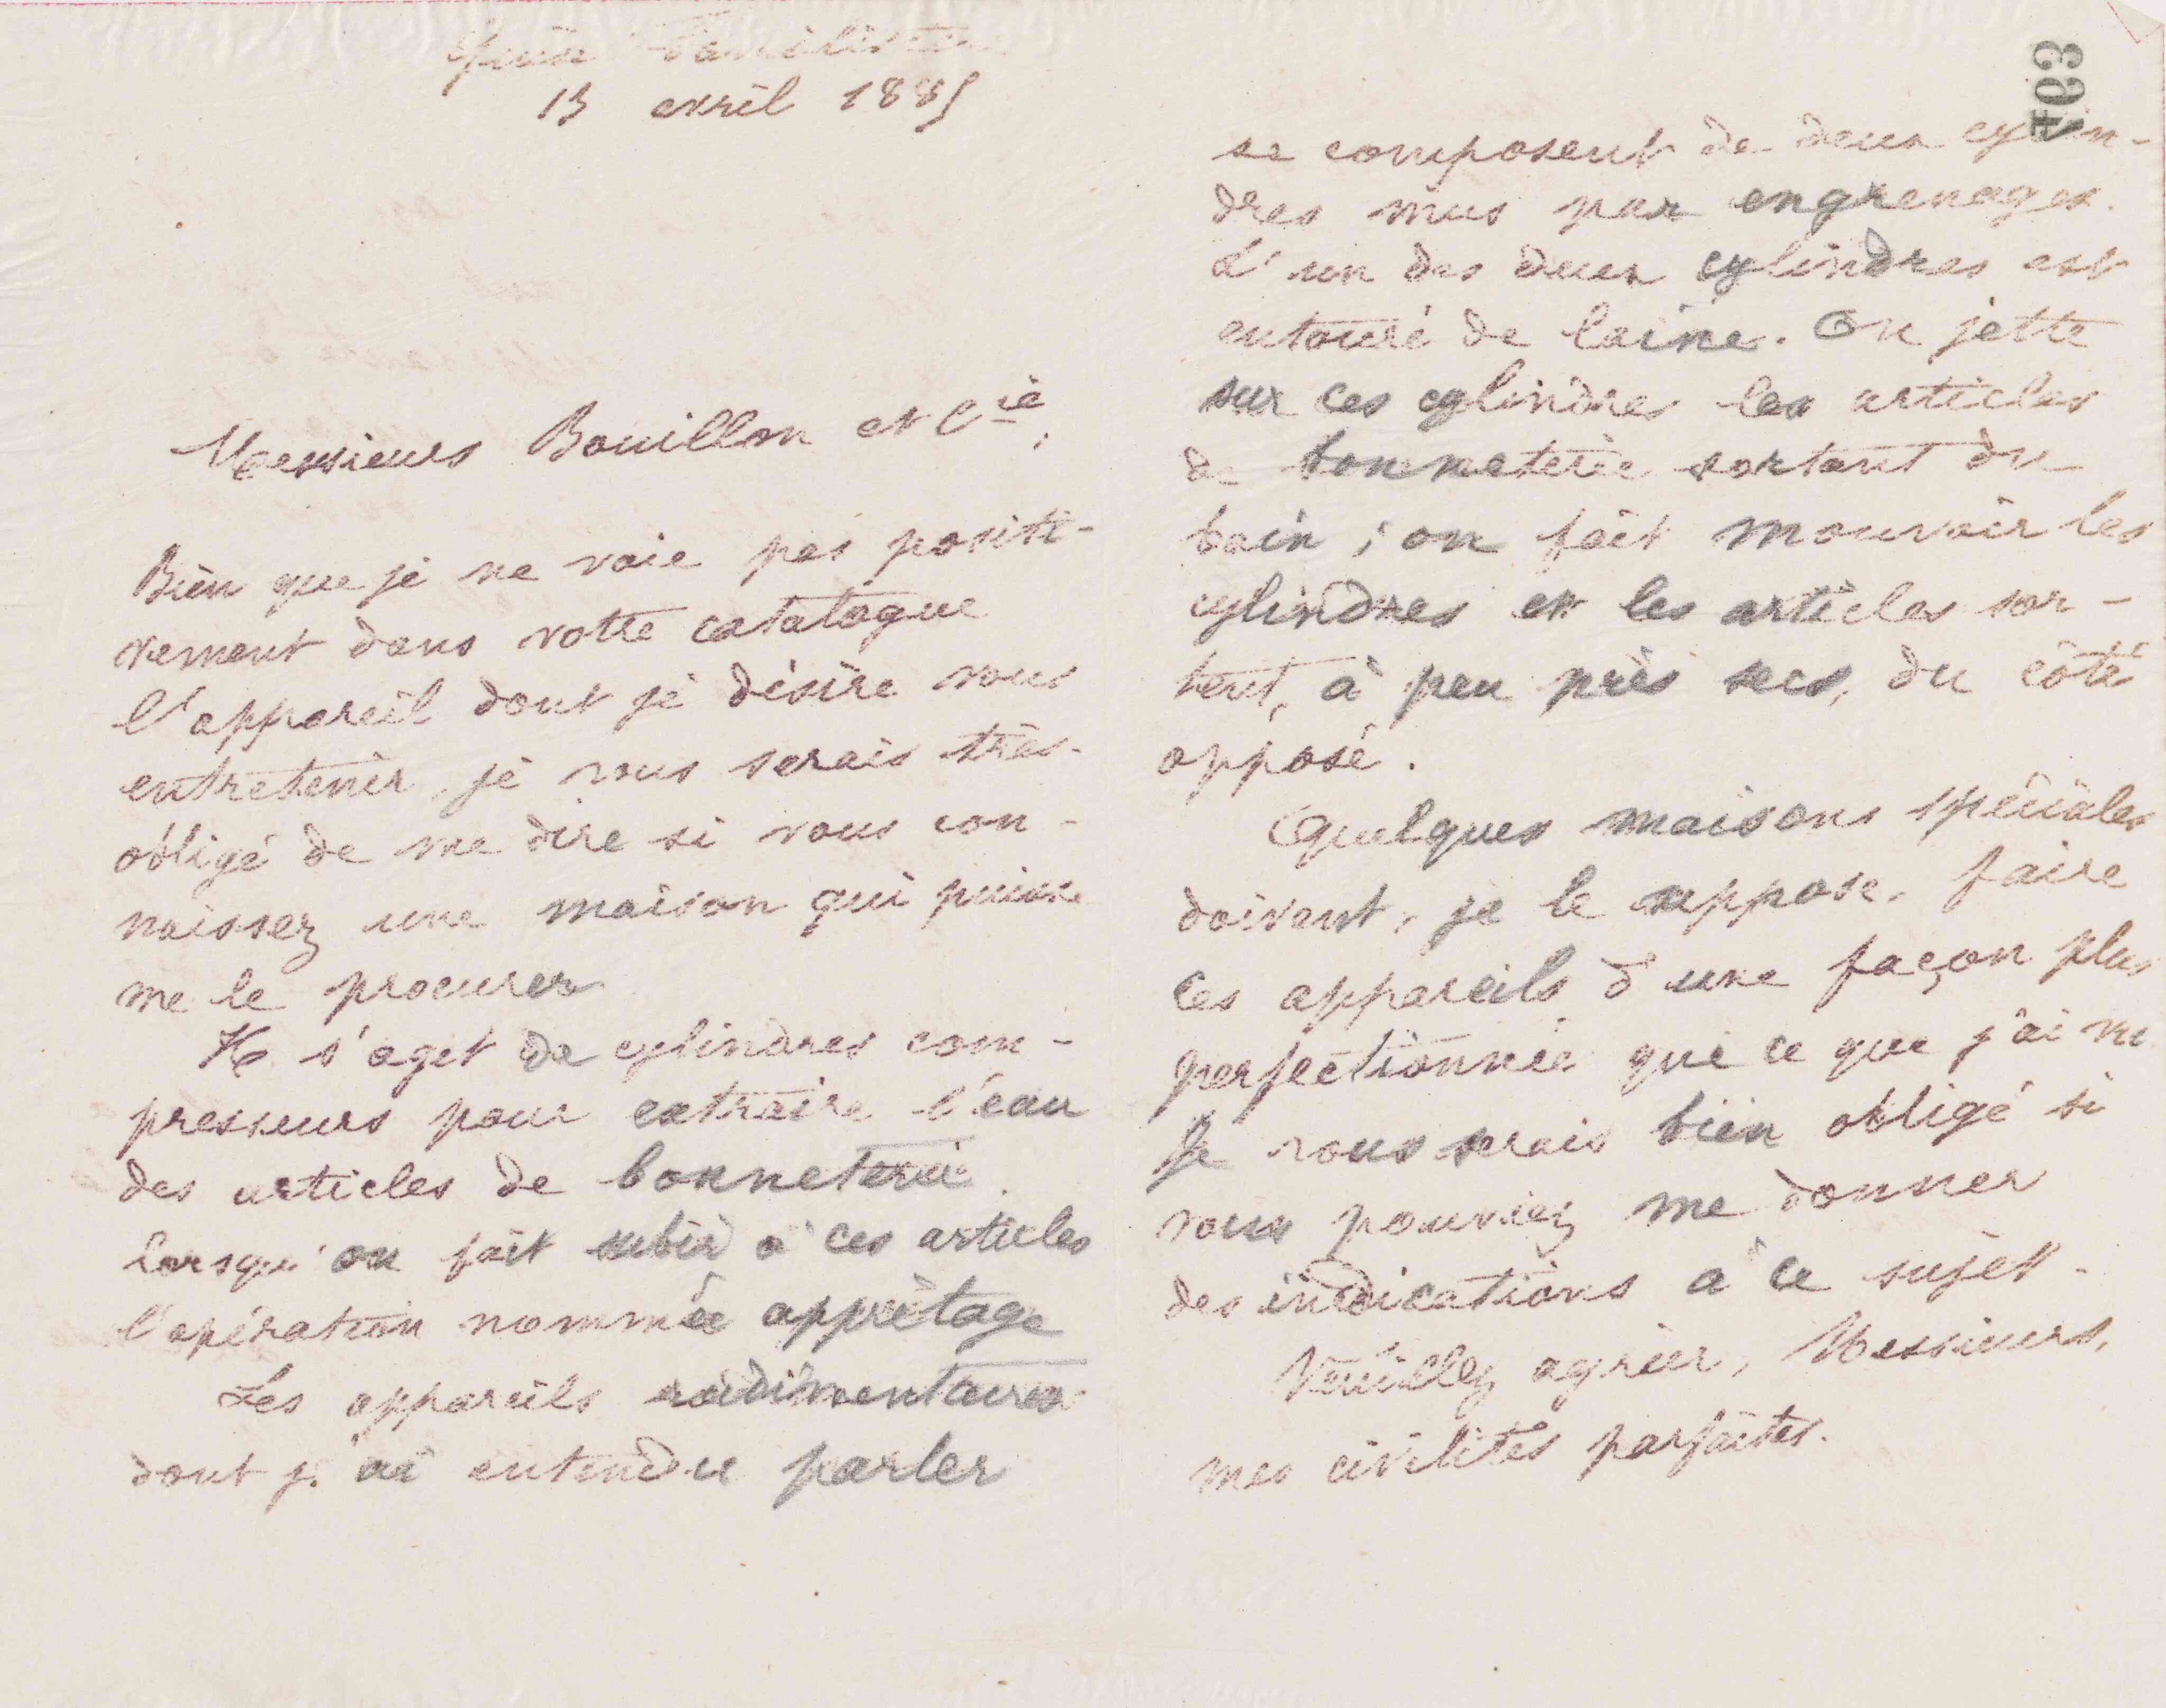 Guise Familistère
13 avril 1885
Messieurs Bouillon et Cie,
Bien que je ne voie pas positi-
vement dans votre catalogue
l'appareil dont je désire vous
entretenir, je vous serais très-
obligé de me dire si vous con-
naissez une maison qui puisse
me le procurer.
Il s'agit de cylindres com-
presseurs pour extraire l'eau
des articles de bonneterie
lorsqu'on fait subir à ces articles
l'opération nommée apprêtage
Les appareils rudimentaires
dont j'ai entendu parler
703
se composent de deux cylin-
dres mus par engrenages.
L'un des deux cylindres est
entouré de laine. On jette
sur ces cylindres les articles
de bonneterie sortant du
bain ; on fait mouvoir les
cylindres et les articles sor-
tent, à peu près secs, du côté
opposé.
Quelques maisons spéciales
doivent, je le suppose, faire
ces appareils d'une façon plus
perfectionnée que ce que j'ai vu.
Je vous serais bien obligé si
vous pouviez me donner
des indications à ce sujet.
Veuillez agréer, Messieurs,
mes civilités parfaites.